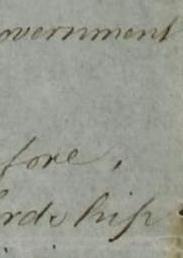 overnment
fore,
ordship